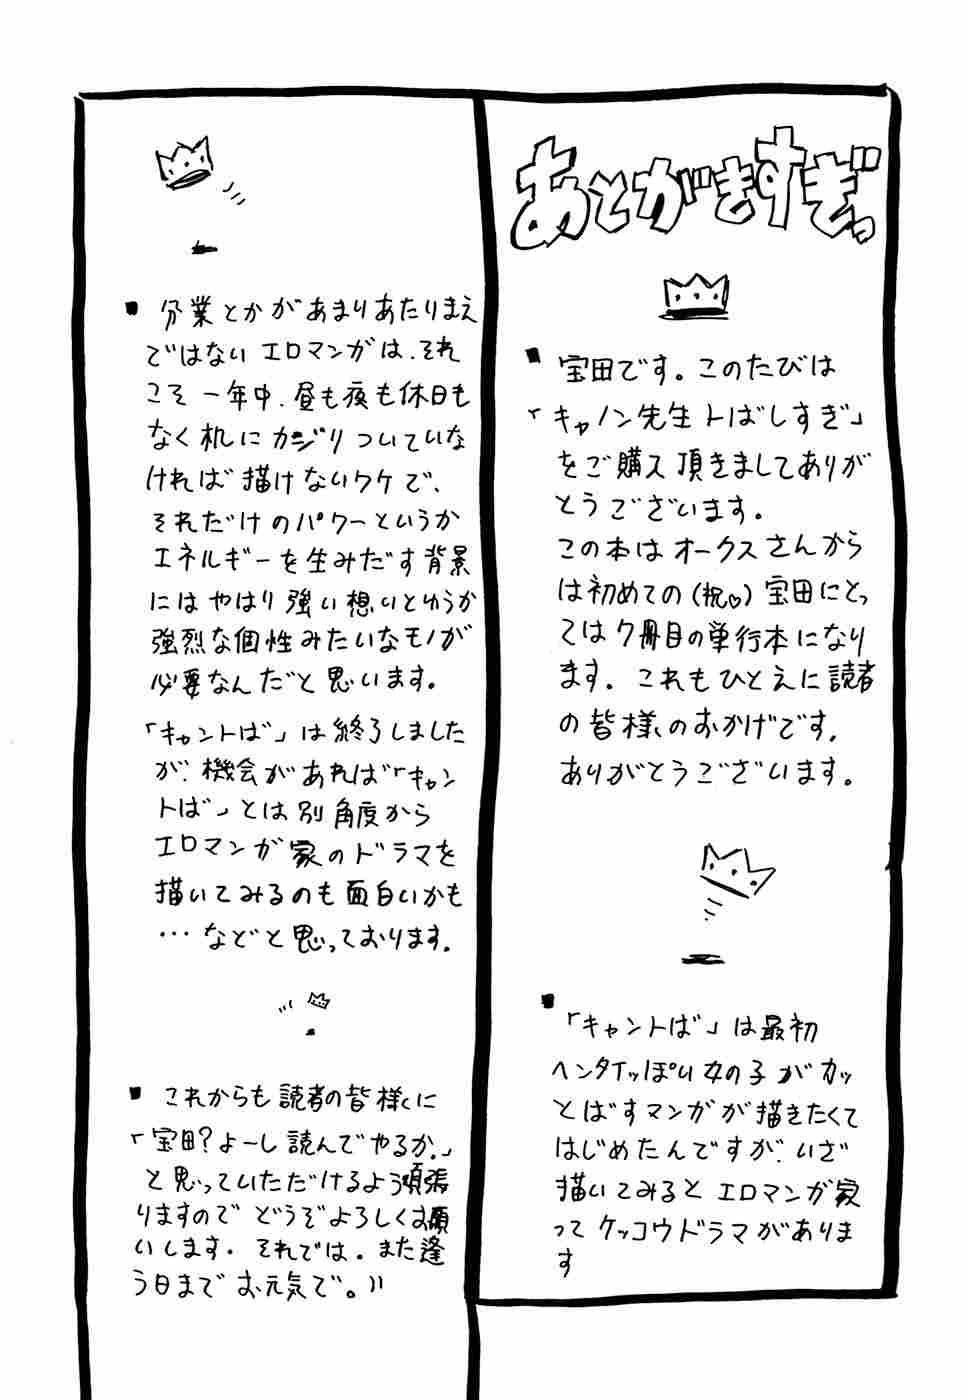 あとがきすぎっ
■ 宝田です。このたびは
「キャノン先生トばしすぎ」
をご購入頂きましてありが
とうございます。
この本はオークスさんから
は初めての(祝♡)宝田にとっ
ては7冊目の単行本になり
ます。これもひとえに読者
の皆様のおかげです。
ありがとうございます。
■ 「キャントば」は最初
ヘンタイッぽい女の子がカッ
とばすマンガが描きたくて
はじめたんですが、いざ
描いてみるとエロマンガ家
ってケッコウドラマがありま
す
■ 分業とかがあまりあたりまえ
ではないエロマンガは、それ
こそ一年中、昼も夜も休日も
なく机にカジりついていな
ければ描けないワケで、
それだけのパワーというか
エネルギーを生みだす背景
にはやはり強い想いとゆうか
強烈な個性みたいなモノが
必要なんだと思います。
「キャントば」は終了しました
が、機会があれば「キャン
トば」とは別角度から
エロマンガ家のドラマを
描いてみるのも面白いかも
…などと思っております。
■ これからも読者の皆様に
「宝田?よーし読んでやるか。」
と思っていただけるよう頑張
りますのでどうぞよろしくお願
いします。それでは。また逢
う日までお元気で。〃